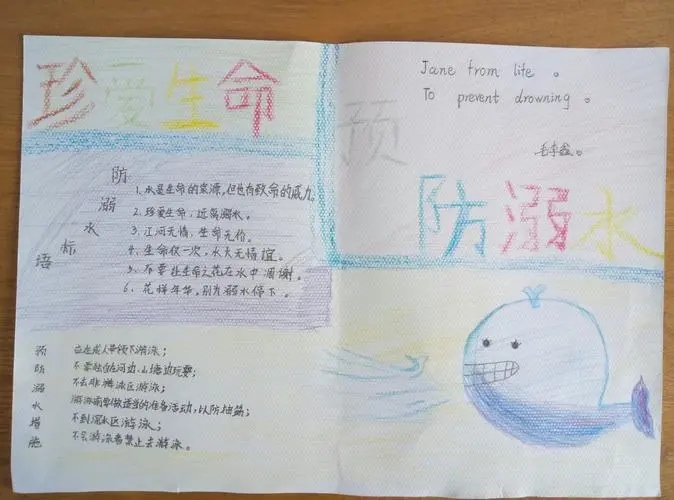 珍爱生命
防溺水标语
1、水是生命的,但也有致命的威力。
2、珍爱生命,远离溺水。
3、江河无情,生命无价。
4、生命仅一次,水火无情谊。
5、不要让生命之花在水中凋谢!
6、花样年华,别为溺水停下。
预防溺水措施
应在成人带领下游泳;
不要独自在河边、山塘边玩耍;
不去非游泳区游泳;
游泳前要做适当的准备活动,以防抽筋;
不到深水区游泳;
不会游泳者禁止去游泳。
Jane from life 。
To prevent drowning 。
预
防溺水